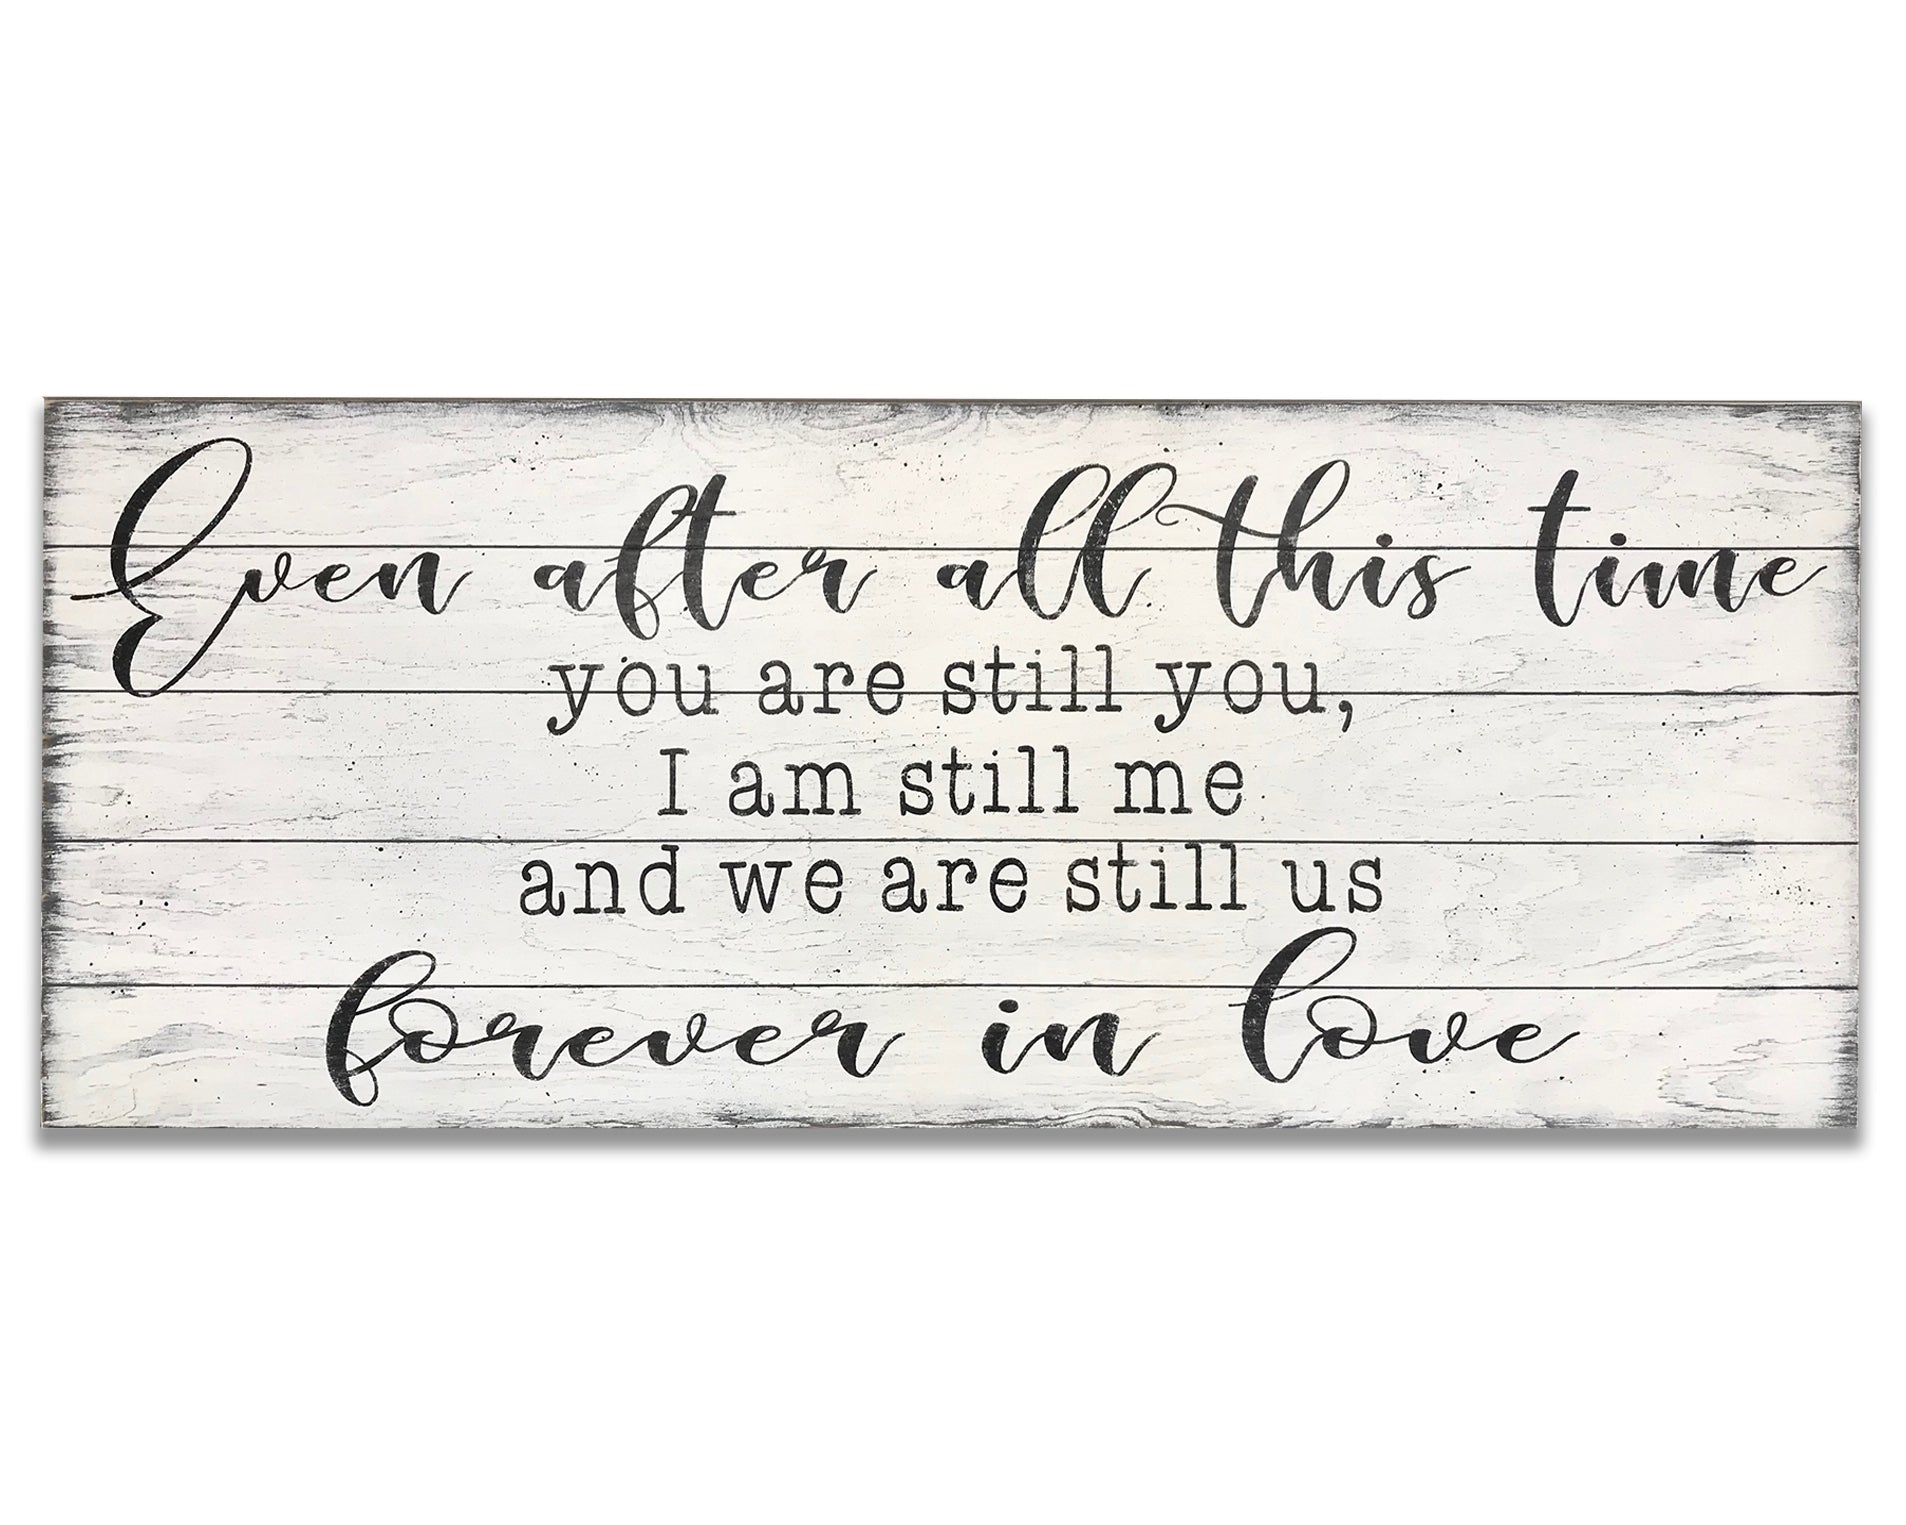 Even after all this time
you are still you,
I am still me
and we are still us
forever in love